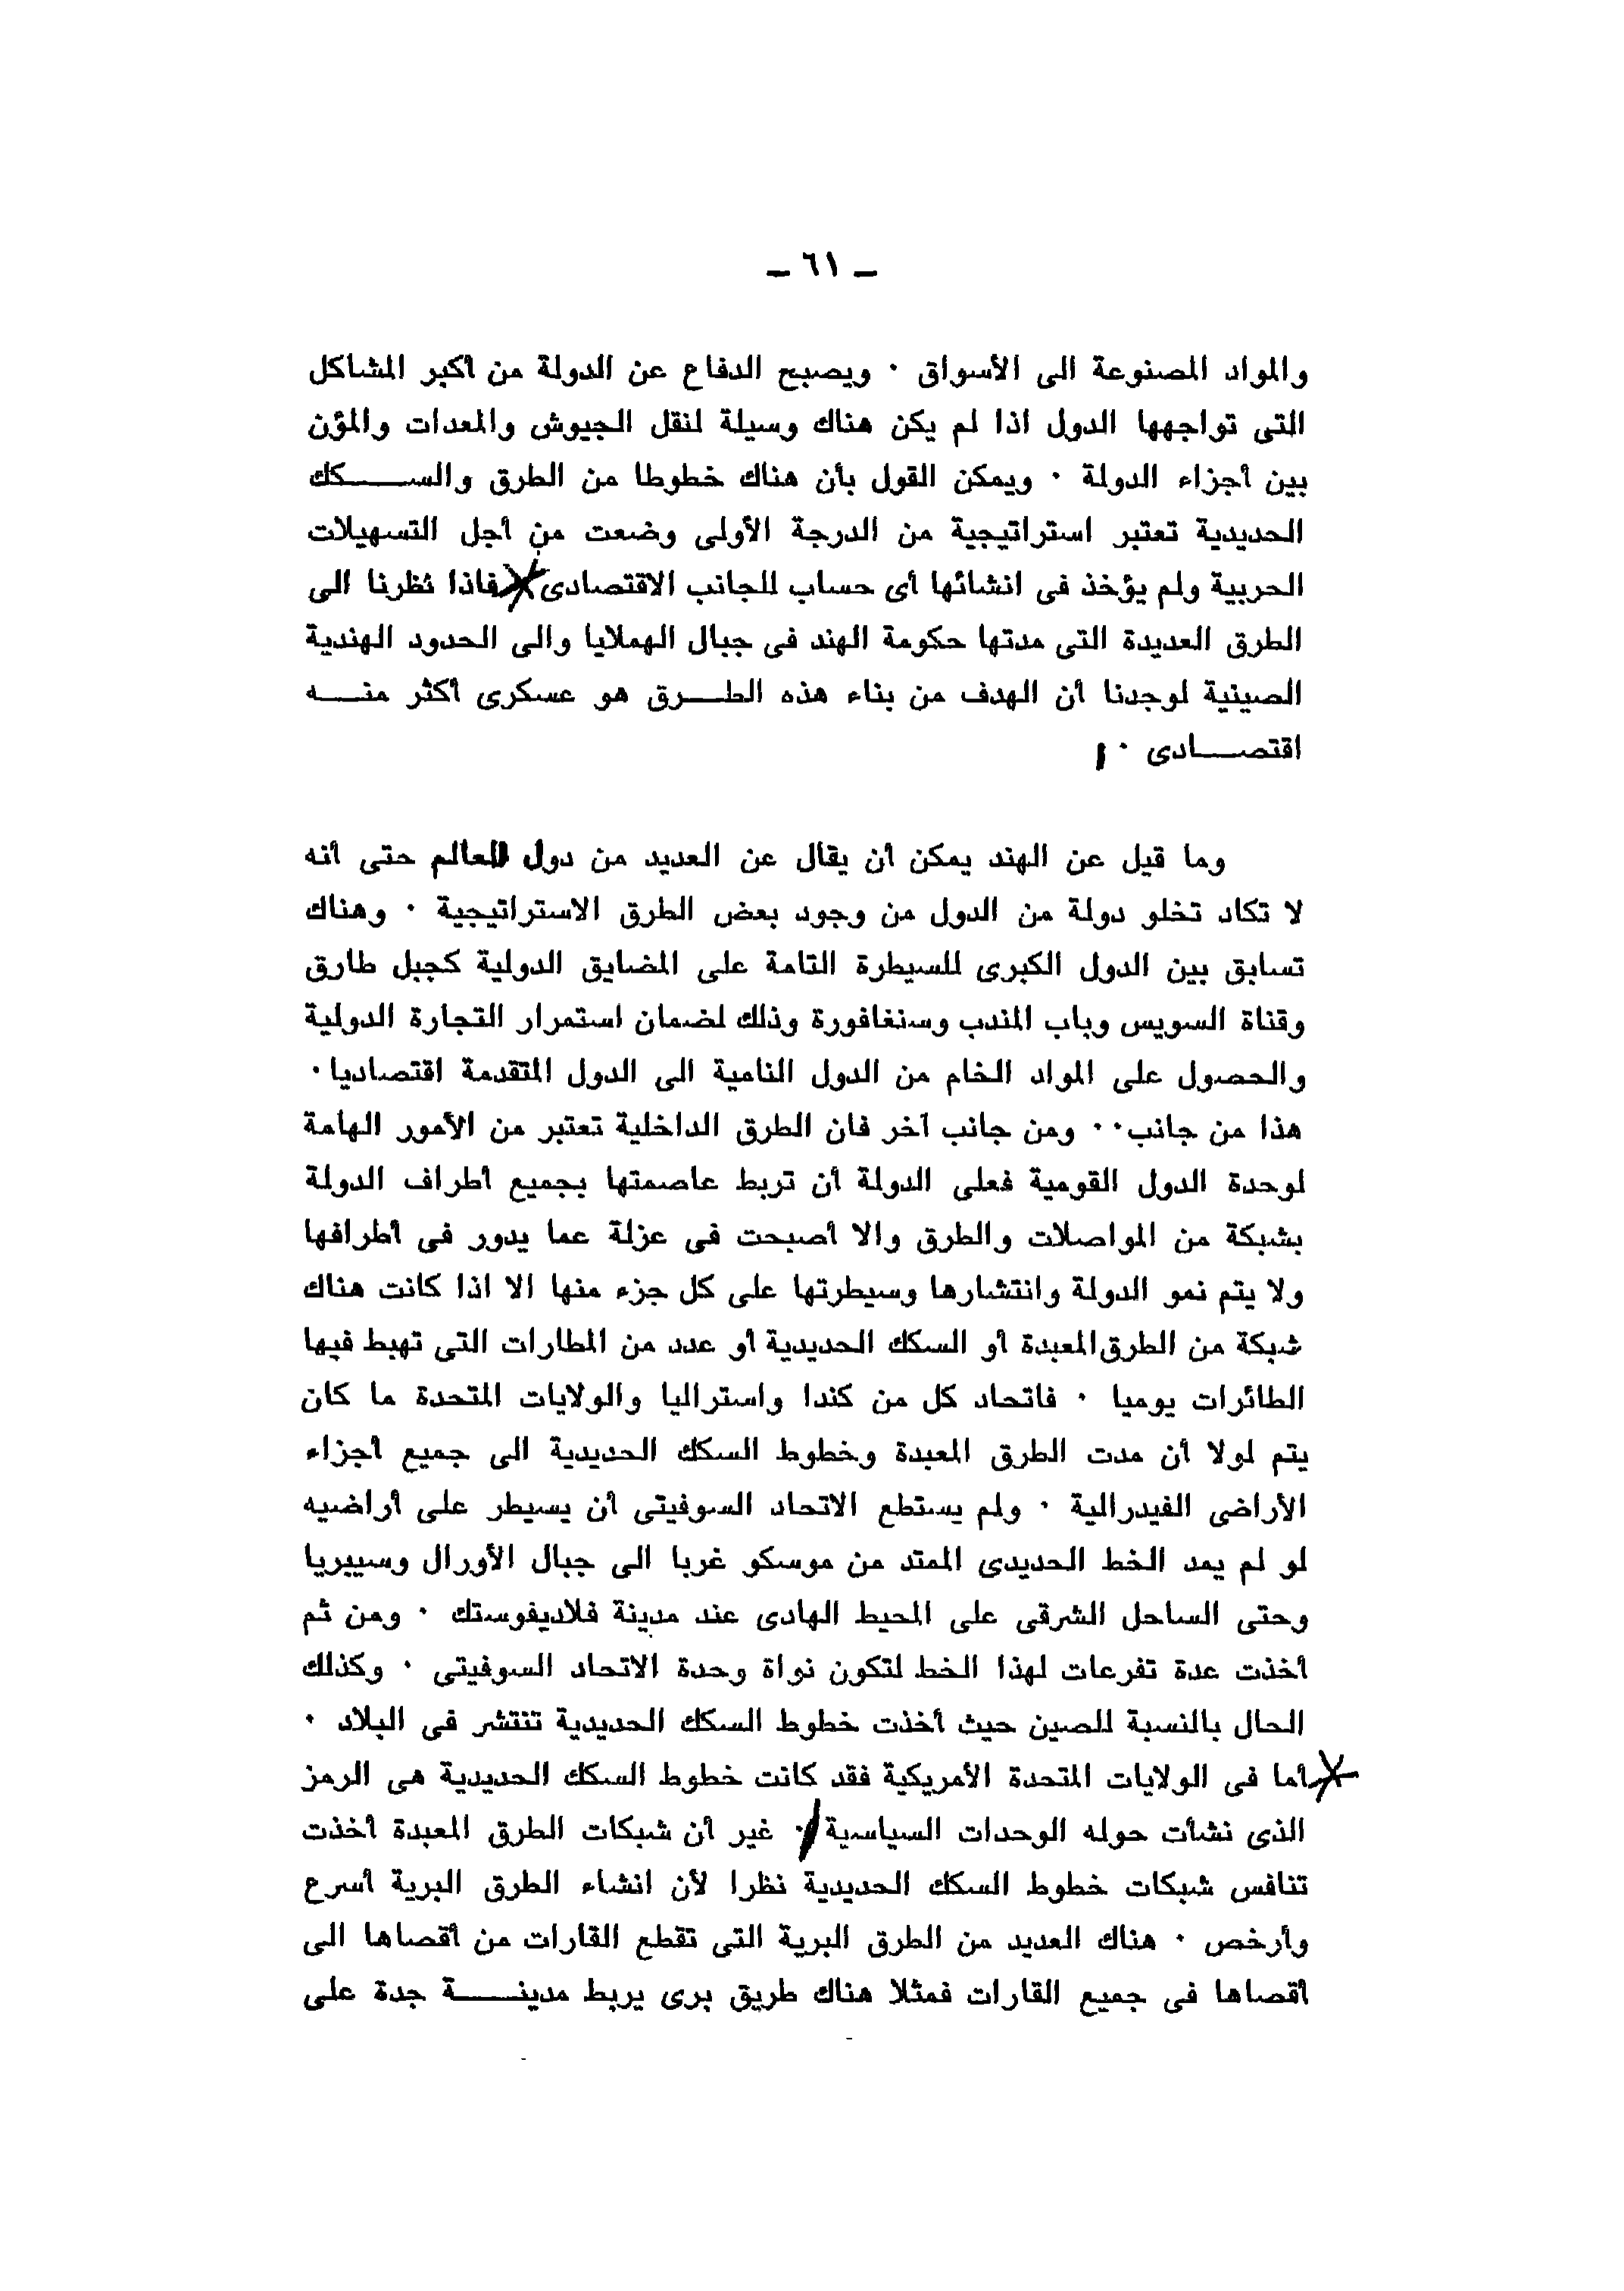 ـ ٦١ ـ
والمواد المصنوعة الى الأسواق ٠ ويصبح الدفاع عن الدولة من أكبر المشاكل
التى تواجهها الدول اذا لم يكن هناك وسيلة لنقل الجيوش والمعدات والمؤن
بين أجزاء الدولة ٠ ويمكن القول بأن هناك خطوطا من الطرق والســـكك
الحديدية تعتبر استراتيجية من الدرجة الأولى وضعت من أجل التسهيلات
الحربية ولم يؤخذ فى انشائها أى حساب للجانب الاقتصادى فاذا نظرنا الى
الطرق العديدة التى مدتها حكومة الهند فى جبال الهملايا والى الحدود الهندية
الصينية لوجدنا أن الهدف من بناء هذه الطـــرق هو عسكرى أكثر منـــه
اقتصـــادى ٠
وما قيل عن الهند يمكن أن يقال عن العديد من دول العالم حتى أنه
لا تكاد تخلو دولة من الدول من وجود بعض الطرق الاستراتيجية ٠ وهناك
تسابق بين الدول الكبرى للسيطرة التامة على المضايق الدولية كجبل طارق
وقناة السويس وباب المندب وسنغافورة وذلك لضمان استمرار التجارة الدولية
والحصول على المواد الخام من الدول النامية الى الدول المتقدمة اقتصاديا٠
هذا من جانب٠٠ ومن جانب آخر فان الطرق الداخلية تعتبر من الأمور الهامة
لوحدة الدول القومية فعلى الدولة أن تربط عاصمتها بجميع أطراف الدولة
بشبكة من المواصلات والطرق والا أصبحت فى عزلة عما يدور فى أطرافها
ولا يتم نمو الدولة وانتشارها وسيطرتها على كل جزء منها الا اذا كانت هناك
شبكة من الطرق المعبدة أو السكك الحديدية أو عدد من المطارات التى تهبط فيها
الطائرات يوميا ٠ فاتحاد كل من كندا واستراليا والولايات المتحدة ما كان
يتم لولا أن مدت الطرق المعبدة وخطوط السكك الحديدية الى جميع أجزاء
الأراضى الفيدرالية ٠ ولم يستطع الاتحاد السوفيتى أن يسيطر على أراضيه
لو لم يمد الخط الحديدى الممتد من موسكو غربا الى جبال الأورال وسيبريا
وحتى الساحل الشرقى على المحيط الهادى عند مدينة فلاديفوستك ٠ ومن ثم
أخذت عدة تفرعات لهذا الخط لتكون نواة وحدة الاتحاد السوفيتى ٠ وكذلك
الحال بالنسبة للصين حيث أخذت خطوط السكك الحديدية تنتشر فى البلاد ٠
أما فى الولايات المتحدة الأمريكية فقد كانت خطوط السكك الحديدية هى الرمز
الذى نشأت حوله الوحدات السياسية ٠ غير أن شبكات الطرق المعبدة أخذت
تنافس شبكات خطوط السكك الحديدية نظرا لأن انشاء الطرق البرية أسرع
وأرخص ٠ هناك العديد من الطرق البرية التى تقطع القارات من أقصاها الى
أقصاها فى جميع القارات فمثلا هناك طريق برى يربط مدينـــة جدة على